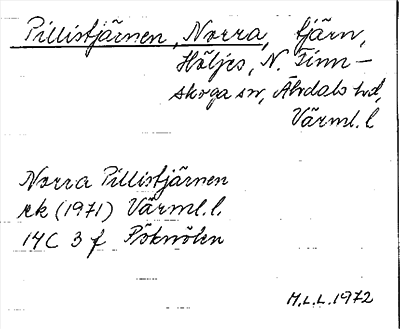 Pillistjärnen, Norra, tjärn,
Höljes, N. Finn-
skoga sn, Älvdals hd,
Värml. l
Norra Pillistjärnen
rk (1971) Värml. l.
14C 3 f Pöknölen
M.L.L. 1972